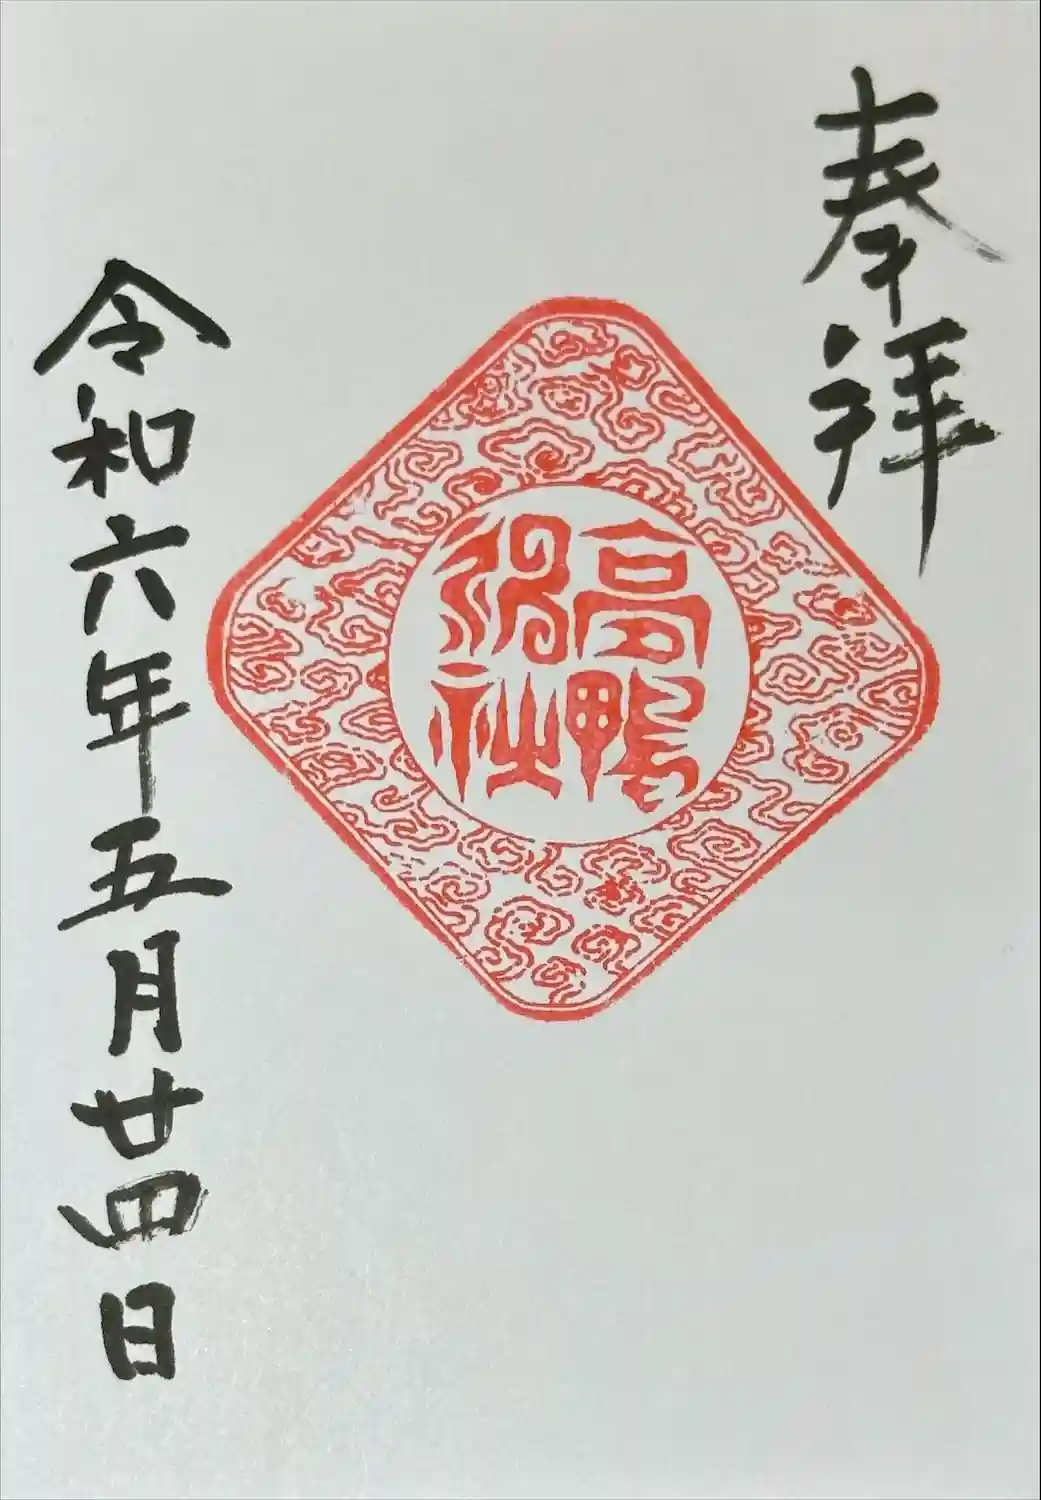 奉拝
高鴨
神社
令和六年五月廿四日